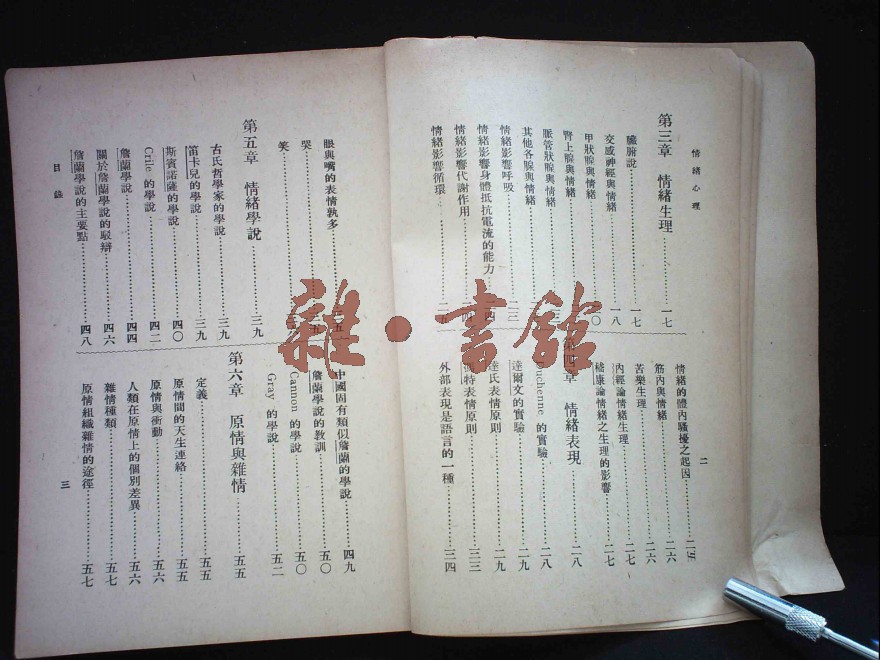 情緒心理
二
第三章 情緒生理……一七
臟腑說……一七
交感神經與情緒……一八
甲狀腺與情緒
腎上腺與情緒
脈管狀腺與情緒
其他各腺與情緒
情緒影響呼吸……二三
情緒影響身體抵抗電流的能力
情緒影響代謝作用
情緒影響循環
情緒的體內騷擾之起因……二五
筋肉與情緒……二六
苦樂生理……二六
內經論情緒生理……二七
嵇康論情緒之生理的影響……二七
第四章 情緒表現……二八
Duchenne 的實驗……二八
達爾文的實驗……二九
達氏表情原則……二九
表情原則……三三
外部表現是語言的一種……三四
眼與嘴的表情孰多
哭
笑
第五章 情緒學說……三九
古氏哲學家的學說……三九
笛卡兒的學說……三九
斯賓諾薩的學說……四〇
Crile 的學說……四二
詹蘭學說……四四
關於詹蘭學說的駁辯……四六
詹蘭學說的主要點……四八
目錄
中國固有類似詹蘭的學說……四九
詹蘭學說的教訓……五〇
Cannon 的學說……五〇
Gray 的學說……五二
第六章 原情與雜情……五五
定義……五五
原情間的天生連絡……五五
原情與衝動……五六
人類在原情上的個別差異……五六
雜情種類……五七
原情組織雜情的途徑……五七
三
雜·書館